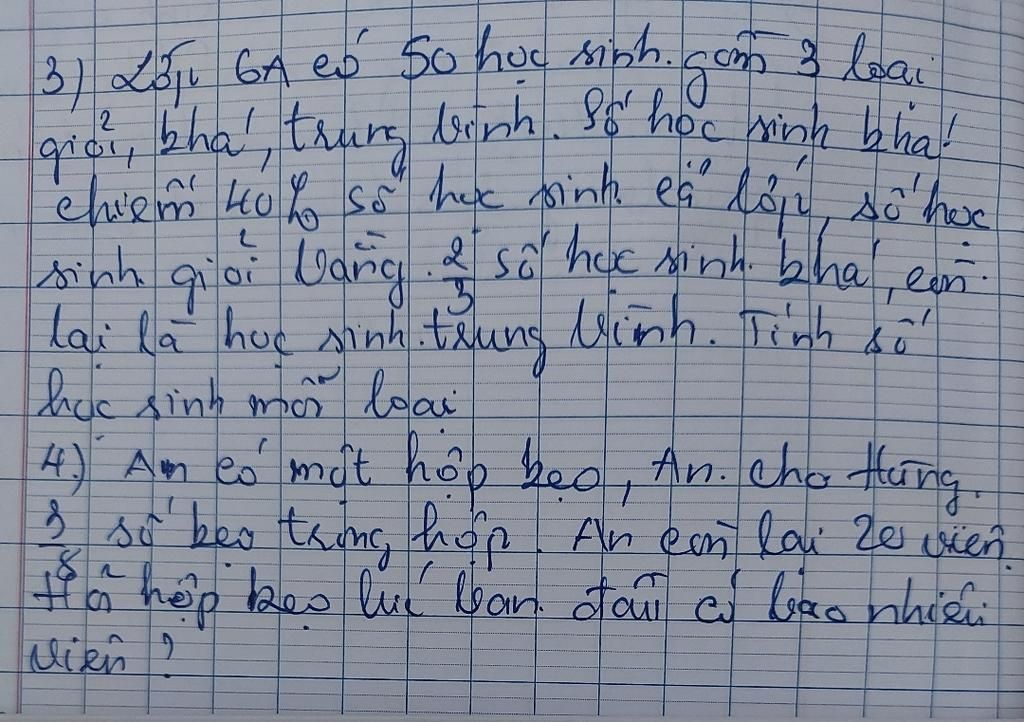 3) Lớp 6A có 50 học sinh. gồm 3 loại
giỏi, khá, trung bình. Số học sinh khá
chiếm 40% số học sinh cả lớp, số học
sinh giỏi bằng 2/3 số học sinh khá, còn
lại là học sinh trung bình. Tính số
học sinh mỗi loại
4.) An có một hộp kẹo, An. cho Hùng.
3/8 số kẹo trong hộp. An còn lại viên.
Hỏi hộp kẹo lúc ban đầu có bao nhiêu
viên ?